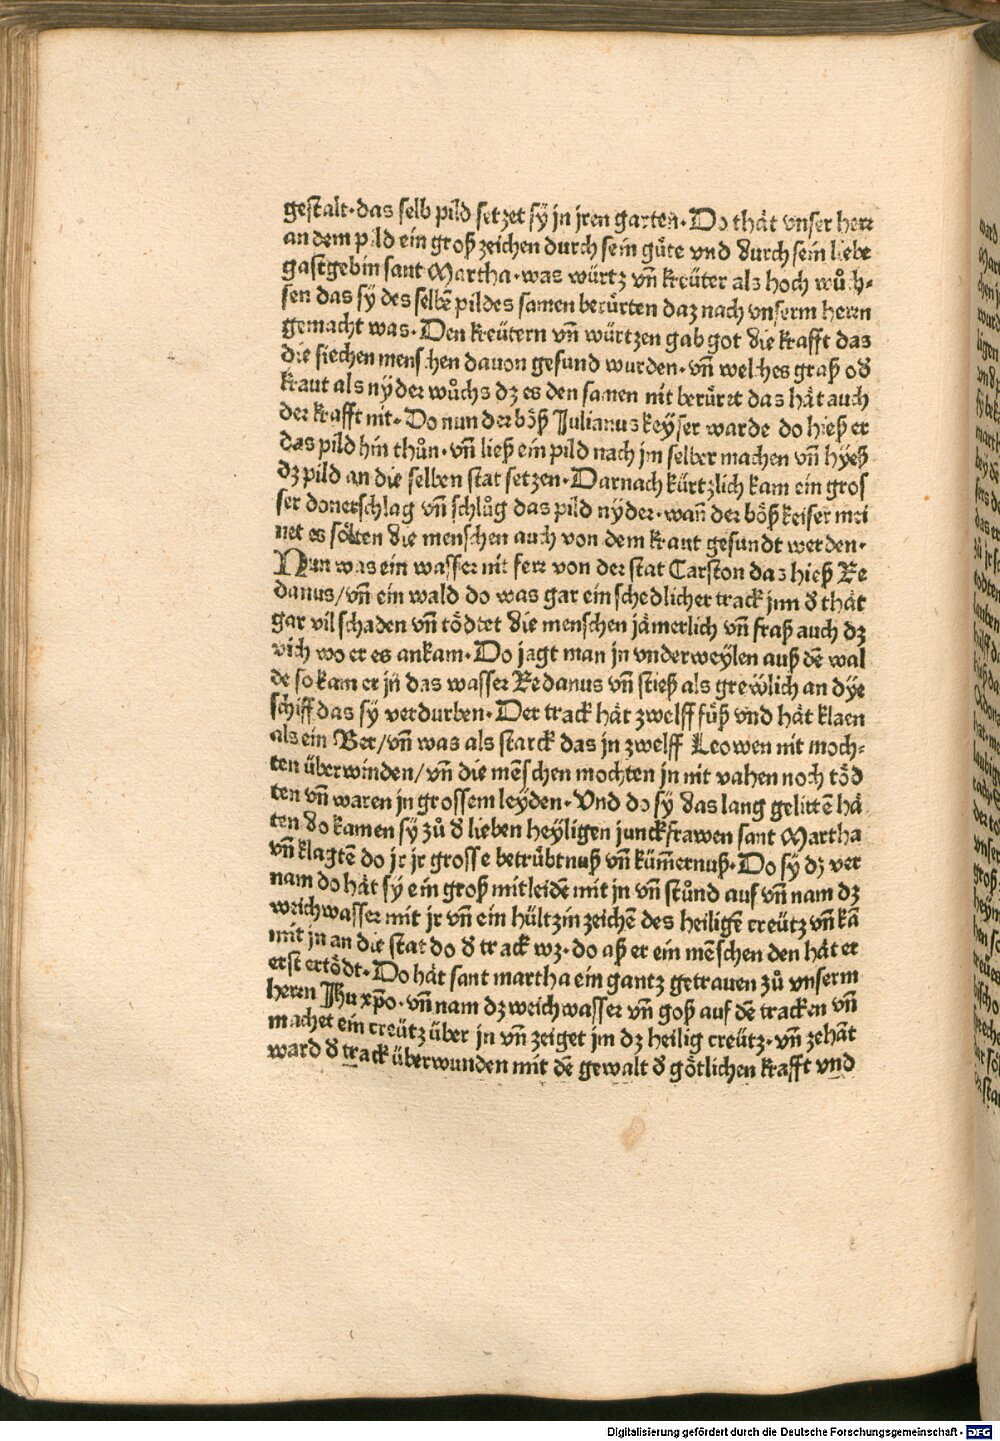 gestalt·das selb pild setzet sÿ jn jren garten·Do thät vnser herr
an dem pild ein groß zeichen durch sein güte vnd durch sein liebe
gastgebin sant Martha·was würtz vn̄ kreüter als hoch wůch⸗
sen das sÿ des selbē pildes samen berürten daz nach vnserm herrn
gemacht was·Den kreütern vn̄ würtzen gab got die krafft das
die siechen menschen dauon gesund wurden·vn̄ welches graß oð
kraut als nÿder wůchs dz es den samen nit berürt das hät auch
der krafft nit·Do nun der böß Julianus keÿser warde do hieß er
das pild hin thůn·vn̄ ließ ein pild nach jm selber machen vn̄ hÿeß
dz pild an die selben stat setzen·Darnach kürtzlich kam ein gros
ser donerschlag vn̄ schlůg das pild nÿder·wan̄ der böß keiser mei
net es sölten die menschen auch von dem kraut gesundt werden·
Nun was ein wasser nit ferr von der stat Carston das hieß Re
danus/vn̄ ein wald do was gar ein schedlicher track jnn ð thät
gar vil schaden vn̄ tödtet die menschen jämerlich vn̄ fraß auch dz
vich wo er es ankam·Do jagt man jn vnderweÿlen auß dē wal
de so kam er jn̄ das wasser Redanus vn̄ stieß als grewlich an dÿe
schiff das sÿ verdurben·Der track hät zwelff füß vnd hät klaen
als ein Ber/vn̄ was als starck das jn zwelff Leowen nit moch⸗
ten überwinden/vn̄ die mēschen mochten jn nit vahen noch töd
ten vn̄ waren jn grossem leÿden·Vnd do sÿ das lang gelittē hä
ten do kamen sÿ zů ð lieben heÿligen junckfrawen sant Martha
vn̄ klagtē do jr jr grosse betrübtnuß vn̄ küm̄ernuß·Do sÿ dz ver
nam do hät sÿ ein groß mitleidē mit jn vn̄ stůnd auf vn̄ nam dz
weichwasser mit jr vn̄ ein hültzin zeichē des heiligē creütz vn̄ kā
mit jn an die stat do ð track wz·do aß er ein mēschen den hät er
erst ertödt·Do hät sant martha ein gantz getrauen zů vnserm
herrn Jhu xp̄o·vn̄ nam dz weichwasser vn̄ goß auf dē tracken vn̄
machet ein creütz über jn vn̄ zeiget jm dz heilig creütz·vn̄ zehāt
ward ð track überwunden mit dē gewalt ð götlichen krafft vnd
Digitalisierung gefördert durch die Deutsche Forschungsgemeinschaft - DFG